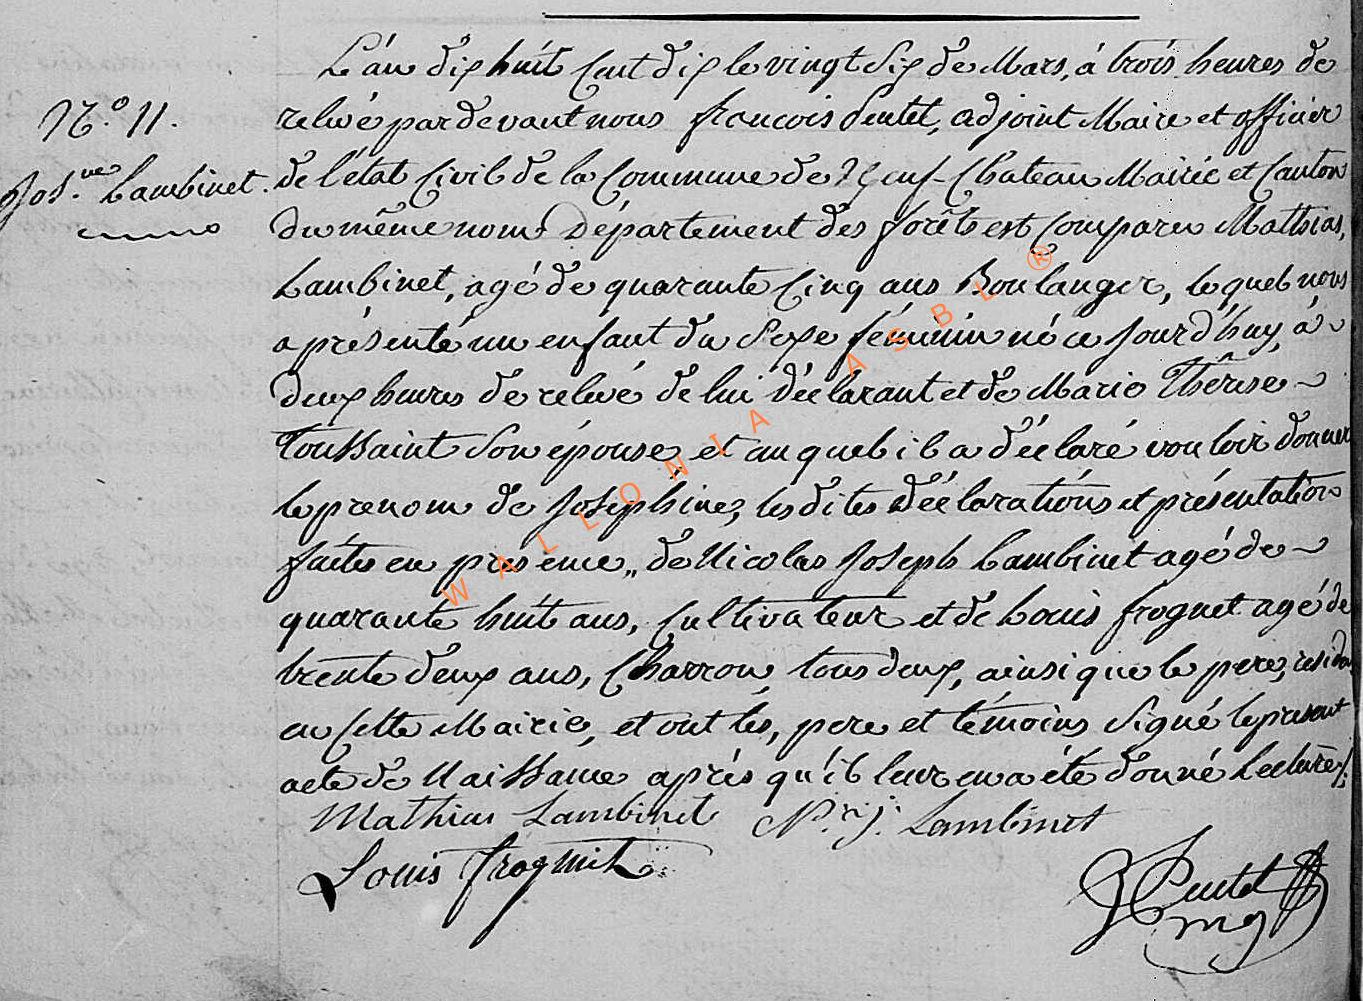 L'an dix huit cent dix le vingt six de Mars, à trois heures de
N.° 11. relevé pardevant nous francois Pentet, adjoint Maire et officier
Jos.ne Lambinet. de l'état Civil de la Commune de Neuf-Chateau Mairie et Canton
du même nom Département des forêts est comparu Mathias,
Lambinet, agé de quarante cinq ans Boulanger, lequel nous
a présenté un enfant du Sexe féminin né ce Jourd'huy, à
deux heures de relevé de lui déclarant et de Marie Thérese
Toussaint son épouse, et auquel il a déclaré vouloir donner
le prenom de Josephine, les dites déclarations et présentation
faites en présence,, de Nicolas Joseph Lambinet agé de
quarante huit ans, Cultivateur et de Louis frognet agé de
trente deux ans, Charron, tous deux, ainsi que le pere, résidan
en cette Mairie, et ont les, pere et témoins signé le présent
acte de Naissance après qu'il leur en a été donné lecture/.
Mathias Lambinet N.n J. Lambinet
Louis frognet
Pentet
WALLONIA ASBL ®